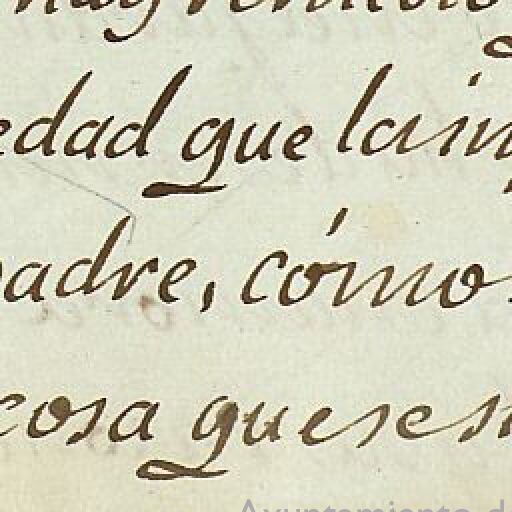 edad que la in
padre, cómo
cosa que se
Ayuntamiento d